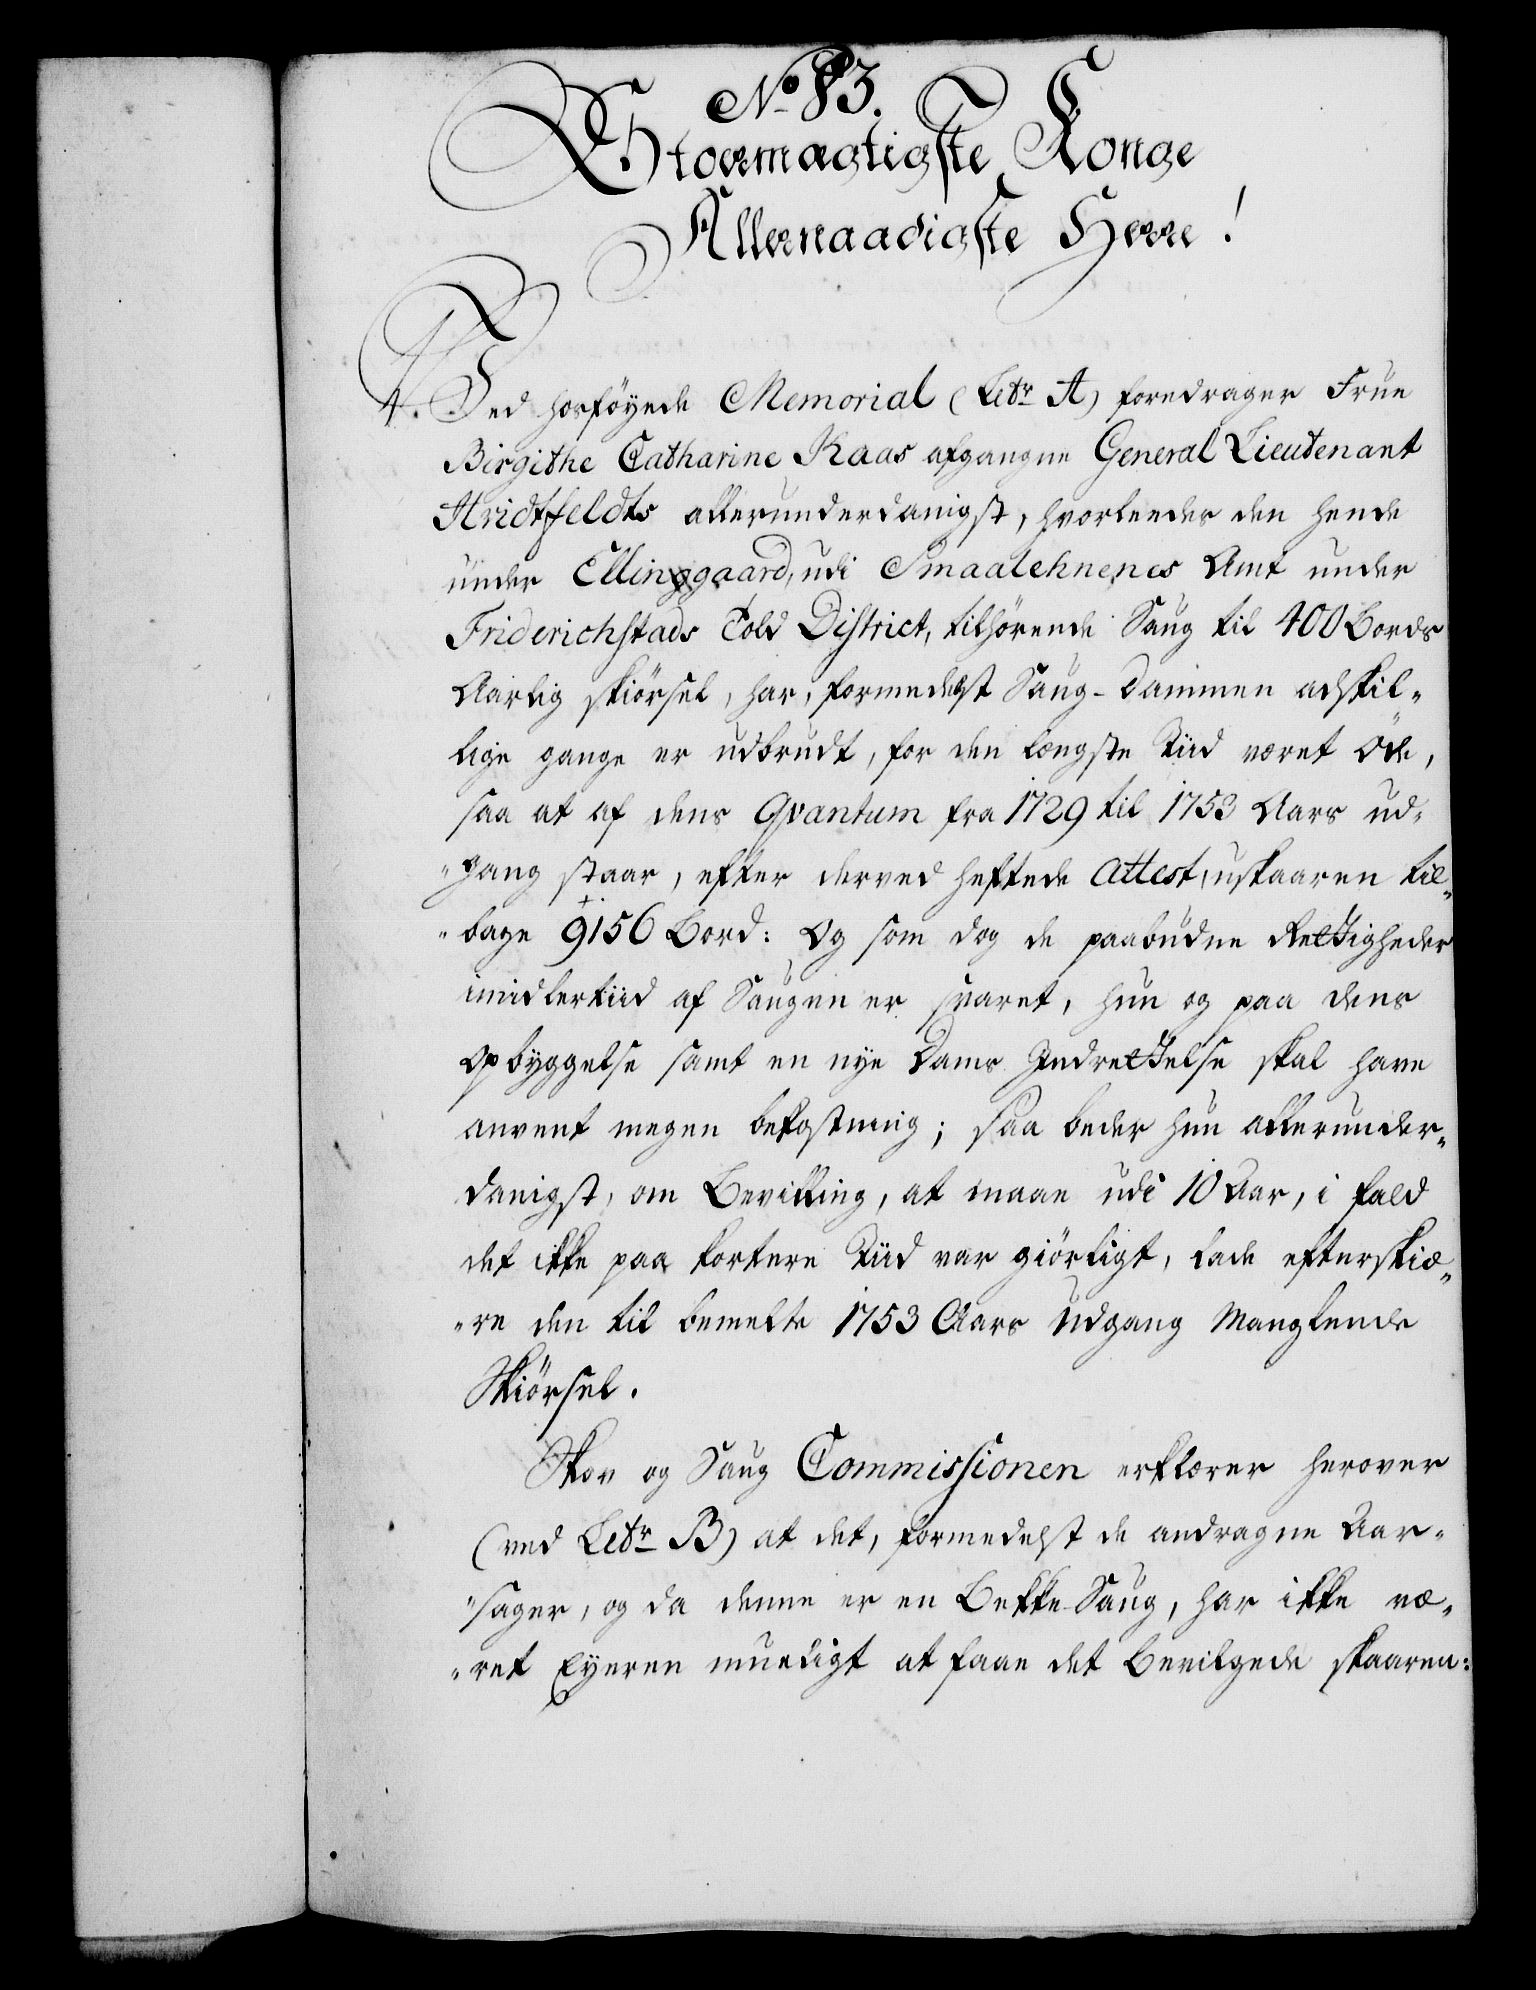 No 83.
Stormægtigste Konge
Allernaadigste Herre!
4. Ved hosföyede Memorial (Litr A) foredrager Frue
Birgithe Catharine Kaas afgangne General Lieutenant
Hvidtfeldts allerunderdanigst, hvorledes den hende
under Ellinggaard, udi Smaalehnenes Amt under
Friderichstads Told District, tilhörende Saug til 400 Bords
Aarlig skiörsel, har, formedelst Saug-Dammen adskil-
lige gange er udbrudt, for den længste Tiid været Öde,
saa at af dens Qvantum fra 1729 til 1753 Aars ud-
-gang staar, efter derved heftede Attest, uskaaren til-
-bage 9156 Bord: Og som dog de paabudne Rettigheder
imidlertiid af Saugen er svaret, hun og paa dens
Opbyggelse samt en nye Dams Indrettelse skal have
anvent megen bekostning; saa beder hun allerunder-
danigst, om Bevilling, at maae udi 10 Aar, i fald
det ikke paa kortere Tiid var giörligt, lade efterskiæ-
-re den til bemelte 1753 Aars Udgang Manglende
Skiörsel.
Skov og Saug Commissionen erklærer herover
(ved Litr B) at det, formedelst de andragne Aar-
-sager, og da denne er en Bekke-Saug, har ikke væ-
-ret Eyeren mueligt at faae det Bevilgede skaaren: